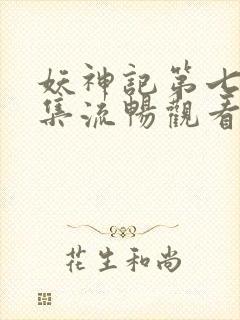 妖神記第七
集流暢觀看
花生和尚